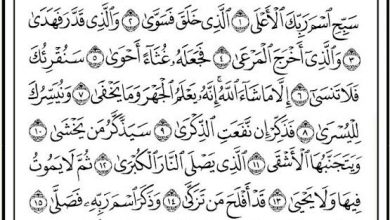 سَبِّحِ ٱسْمَ رَبِّكَ ٱلْأَعْلَى ١ ٱلَّذِى خَلَقَ فَسَوَّىٰ ٢ وَٱلَّذِى قَدَّرَ فَهَدَىٰ
٣ وَٱلَّذِىٓ أَخْرَجَ ٱلْمَرْعَىٰ ٤ فَجَعَلَهُۥ غُثَآءً أَحْوَىٰ ٥ سَنُقْرِئُكَ
فَلَا تَنسَىٰٓ ٦ إِلَّا مَا شَآءَ ٱللَّهُ إِنَّهُۥ يَعْلَمُ ٱلْجَهْرَ وَمَا يَخْفَىٰ ٧ وَنُيَسِّرُكَ
لِلْيُسْرَىٰ ٨ فَذَكِّرْ إِن نَّفَعَتِ ٱلذِّكْرَىٰ ٩ سَيَذَّكَّرُ مَن يَخْشَىٰ ١٠
وَيَتَجَنَّبُهَا ٱلْأَشْقَى ١١ ٱلَّذِى يَصْلَى ٱلنَّارَ ٱلْكُبْرَىٰ ١٢ ثُمَّ لَا يَمُوتُ
فِيهَا وَلَا يَحْيَىٰ ١٣ قَدْ أَفْلَحَ مَن تَزَكَّىٰ ١٤ وَذَكَرَ ٱسْمَ رَبِّهِۦ فَصَلَّىٰ ١٥